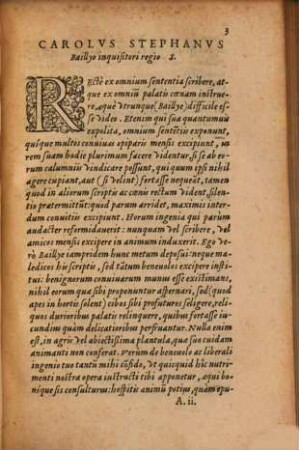 3
CAROLVS STEPHANVS
Baillyo inquisitori regio S.
REctè ex omnium sententia scribere, at-
que ex omniũ palatis coenam instrue-
re, aequè vtrunque (Baillye) difficile es-
se video. Etenim qui sua quantumuis
expolita, omnium sentẽtiis exponunt,
quíque multos conuiuas opiparis mensis excipiunt, ii
rem suam hodie plurimum facere videntur, si se ab eo-
rum calumniis vindicare possunt, qui quum ipsi nihil
agere cupiant, aut (si velint) fortasse nequeãt, tamen
quod in aliorum scriptis ac coenis rectum vident, silen-
tio praetermittũt: quod parum arridet, maximis inter-
dum conuitiis excipiunt. Horum ingenia qui parum
audacter reformidauerit: nunquam vel scribere, vel
amicos mensis excipere in animum induxerit. Ego ve-
rò Baillye iampridem hunc metum deposui: neque ma-
ledicos his scriptis, sed tãtum beneuolos excipere insti-
tui: benignorum conuiuarum munus esse existimans,
nihil eorum quae sibi proponuntur aspernari, sed (quod
apes in hortis solent) cibos sibi profuturos seligere, reli-
quos durioribus palatis relinquere, quibus fortasse iu-
cundius quàm delicatioribus perfruantur. Nulla enim
est, in agris vel abiectissima plantula, quae sua cuidam
animanti non conferat. Verùm de beneuolo ac liberali
ingenio tuo tantũ mihi cõfido, vt quicquid hîc nutri-
menti nostra opera instructi tibi apponetur, aequi boni-
que sis consulturus: hospitis animũ potius, quàm opu-
A. ii.